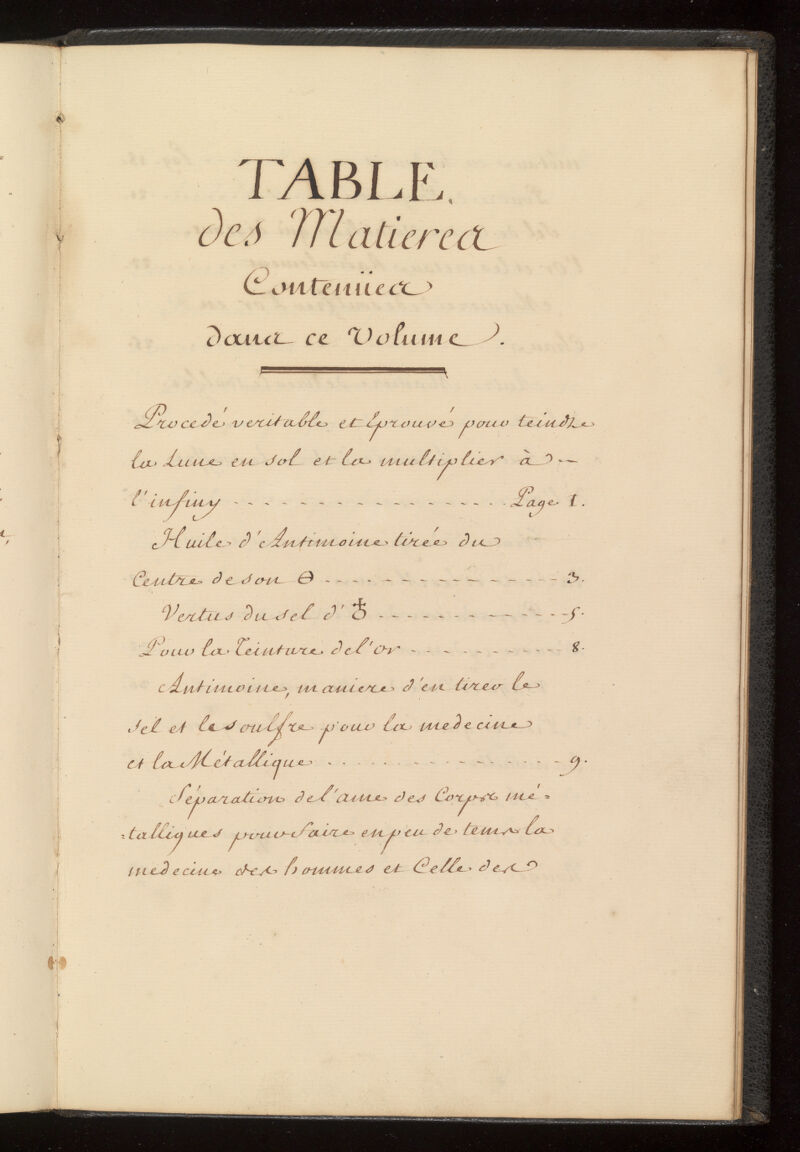 TABLE.
des Matieres
Contenües
dans ce Volume.
Procedé veritable et Eprouvé pour teindre
la Lune en sol et la multiplier à
l'infiny - - - - - - - - - - - - - - - - Page 1.
Huile d'Antimoine tirée du
Centre de son Θ - - - - - - - - - - - - - - 3.
Vertus du sel d'♁ - - - - - - - - - - - - 5.
Pour la Teinture de l'or - - - - - - - - - - 8.
Antimoine, maniere d'en tirer le
sel et le soulfre pour la medecine
et la Métallique - - - - - - - - - - - - - 9.
Séparation de l'ame des Corps mé=
=talliques pour faire en peu de tems la
medecine des hommes et Celle des